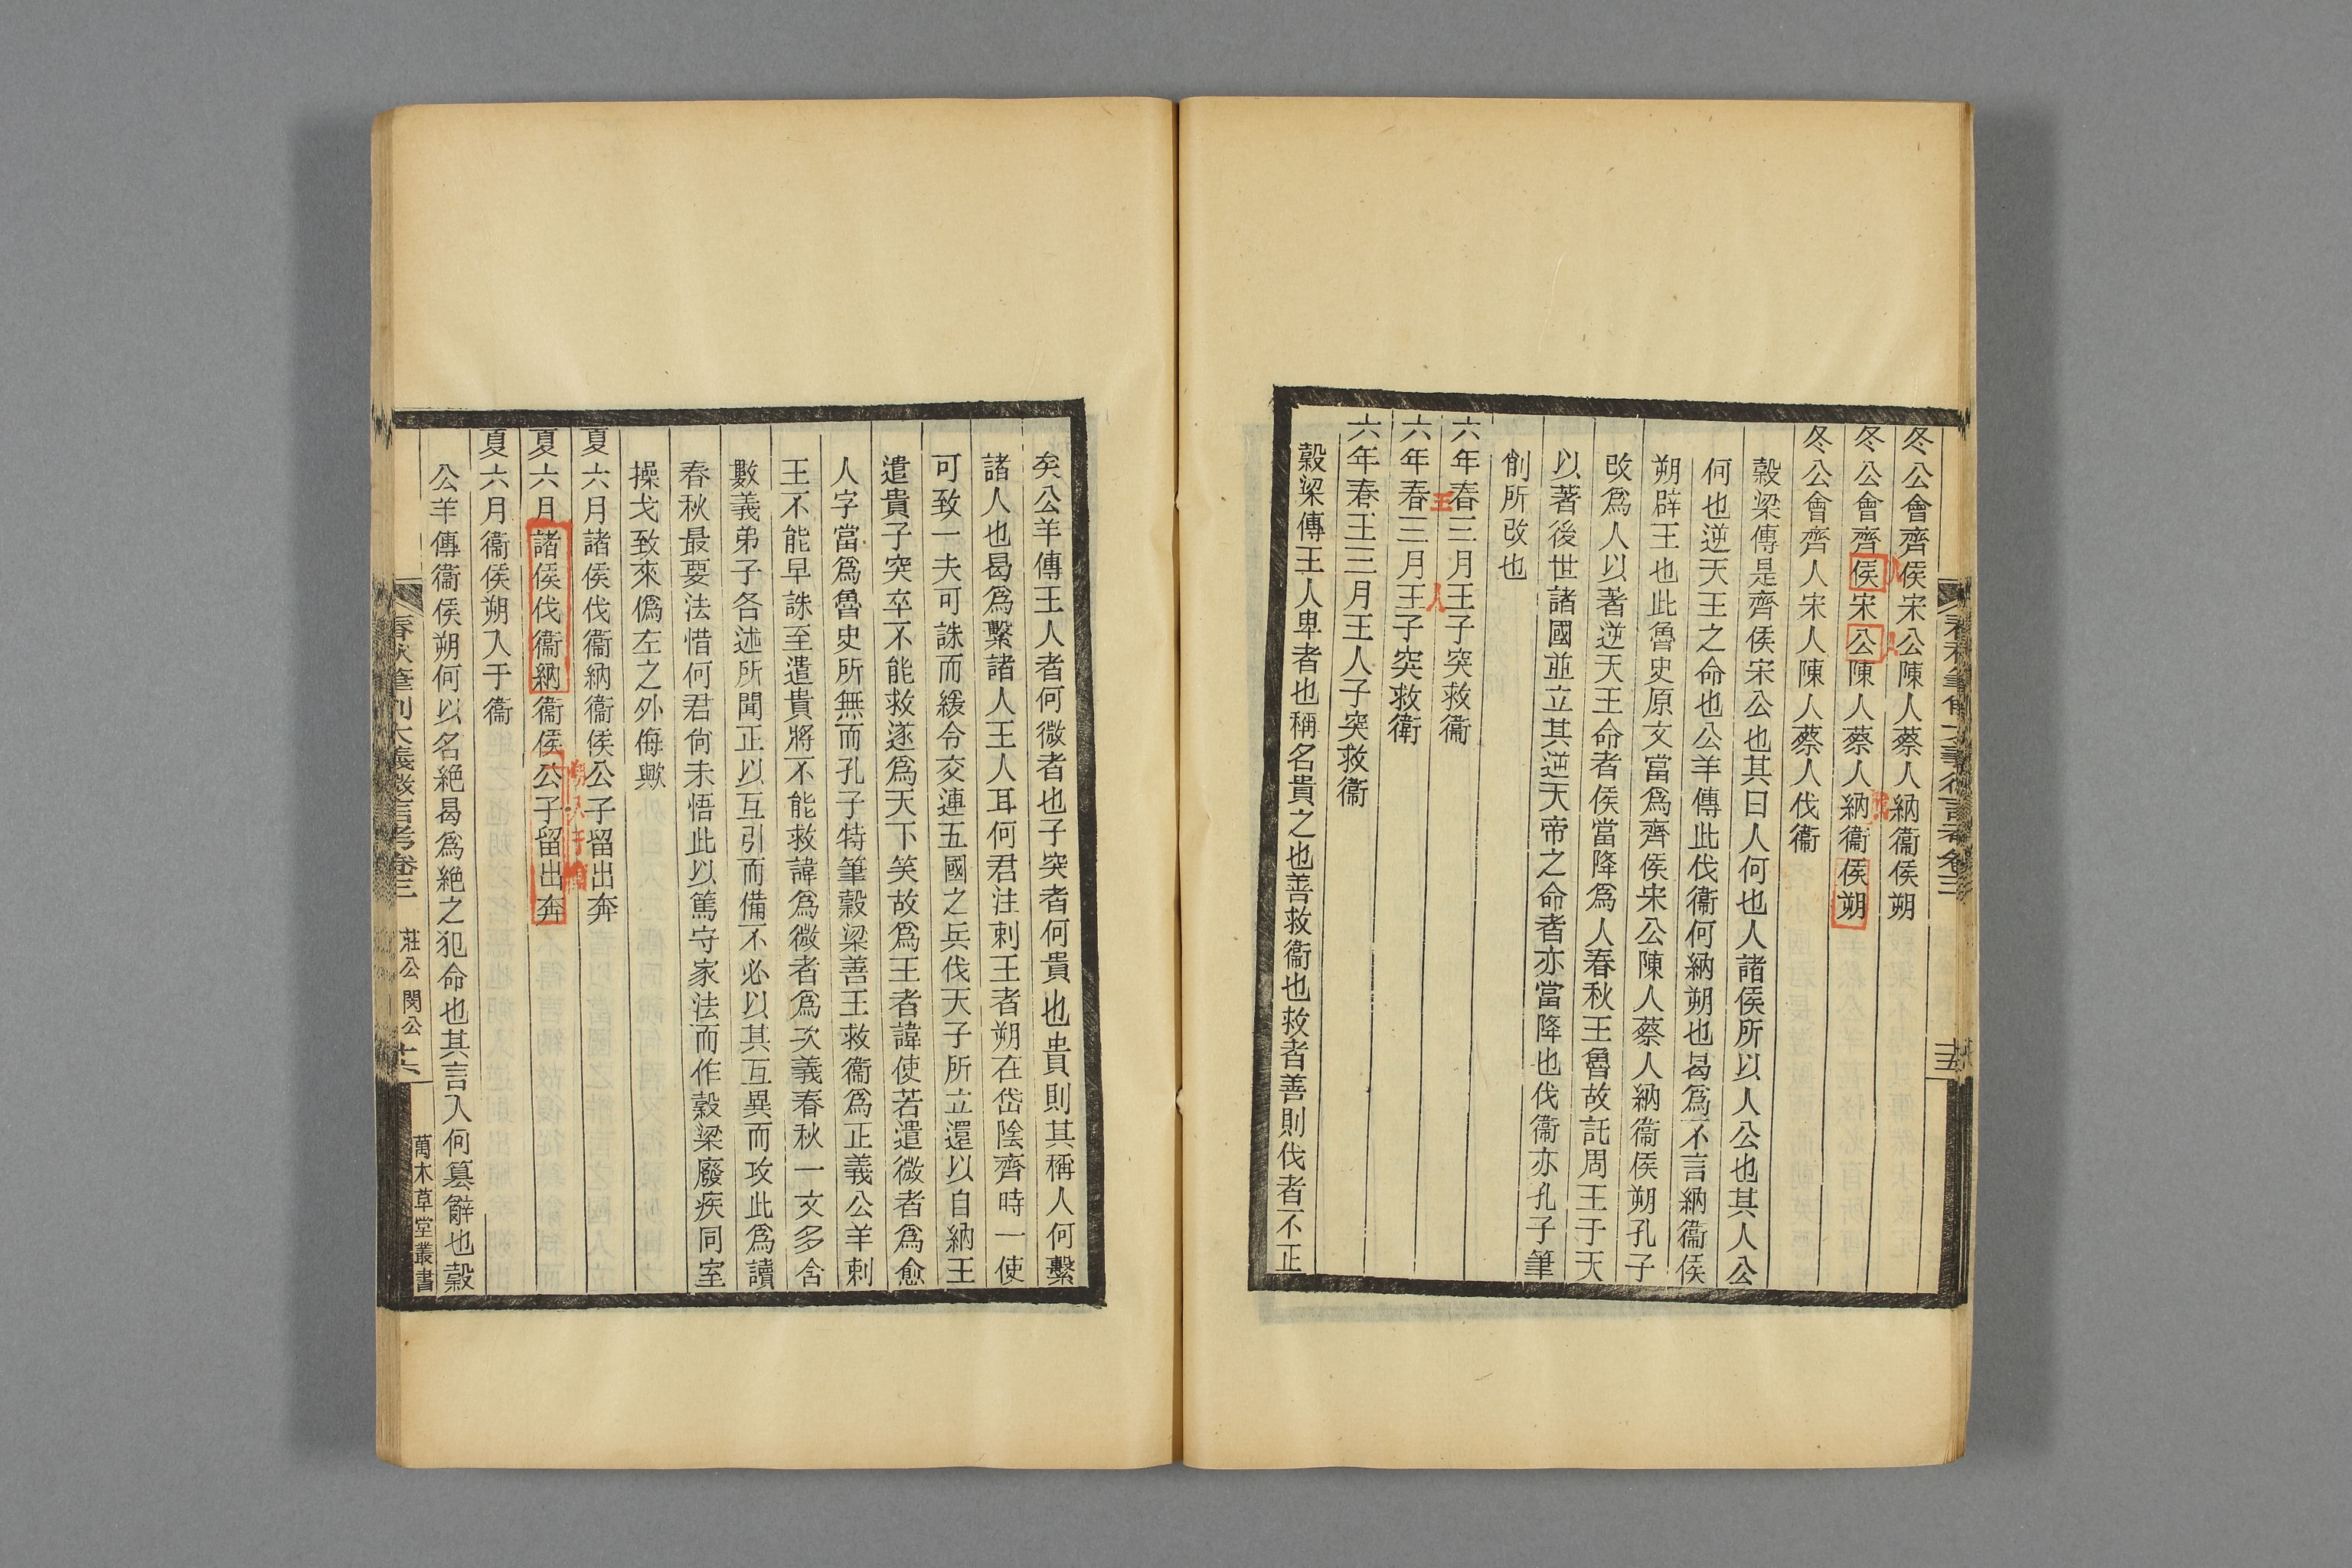 冬公會齊侯宋公陳人蔡人納衞侯朔
人
人
伐
冬公會齊侯宋公陳人蔡人納衞侯朔
冬公會齊人宋人陳人蔡人伐衞
穀梁傳是齊侯宋公也其曰人何也人諸侯所以人公也其人公
何也逆天王之命也公羊傳此伐衞何納朔也曷爲不言納衞侯
朔辟王也此魯史原文當爲齊侯宋公陳人蔡人納衞侯朔孔子
改爲人以著逆天王命者侯當降爲人春秋王魯故託周王于天
以著後世諸國並立其逆天帝之命者亦當降也伐衞亦孔子筆
削所改也
六年春三月王子突救衞
王
人
六年春三月王子突救衛
六年春王三月王人子突救衞
穀梁傳王人卑者也稱名貴之也善救衞也救者善則伐者不正
矣公羊傳王人者何微者也子突者何貴也貴則其稱人何繫
諸人也曷爲繫諸人王人耳何君注刺王者朔在岱陰齊時一使
可致一夫可誅而緩令交連五國之兵伐天子所立還以自納王
遣貴子突卒不能救遂爲天下笑故爲王者諱使若遣微者爲愈
人字當爲魯史所無而孔子特筆穀梁善王救衞爲正義公羊刺
王不能早誅至遣貴將不能救諱爲微者爲次義春秋一文多含
數義弟子各述所聞正以互引而備不必以其互異而攻此爲讀
春秋最要法惜何君尙未悟此以篤守家法而作穀梁廢疾同室
操戈致來僞左之外侮歟
夏六月諸侯伐衞納衞侯公子留出奔
朔入于衞
夏六月諸侯伐衞納衞侯公子留出奔
夏六月衞侯朔入于衞
公羊傳衞侯朔何以名絕曷爲絕之犯命也其言入何篡辭也穀
春秋筆削大義微言考卷三
莊公 閔公
萬木草堂叢書